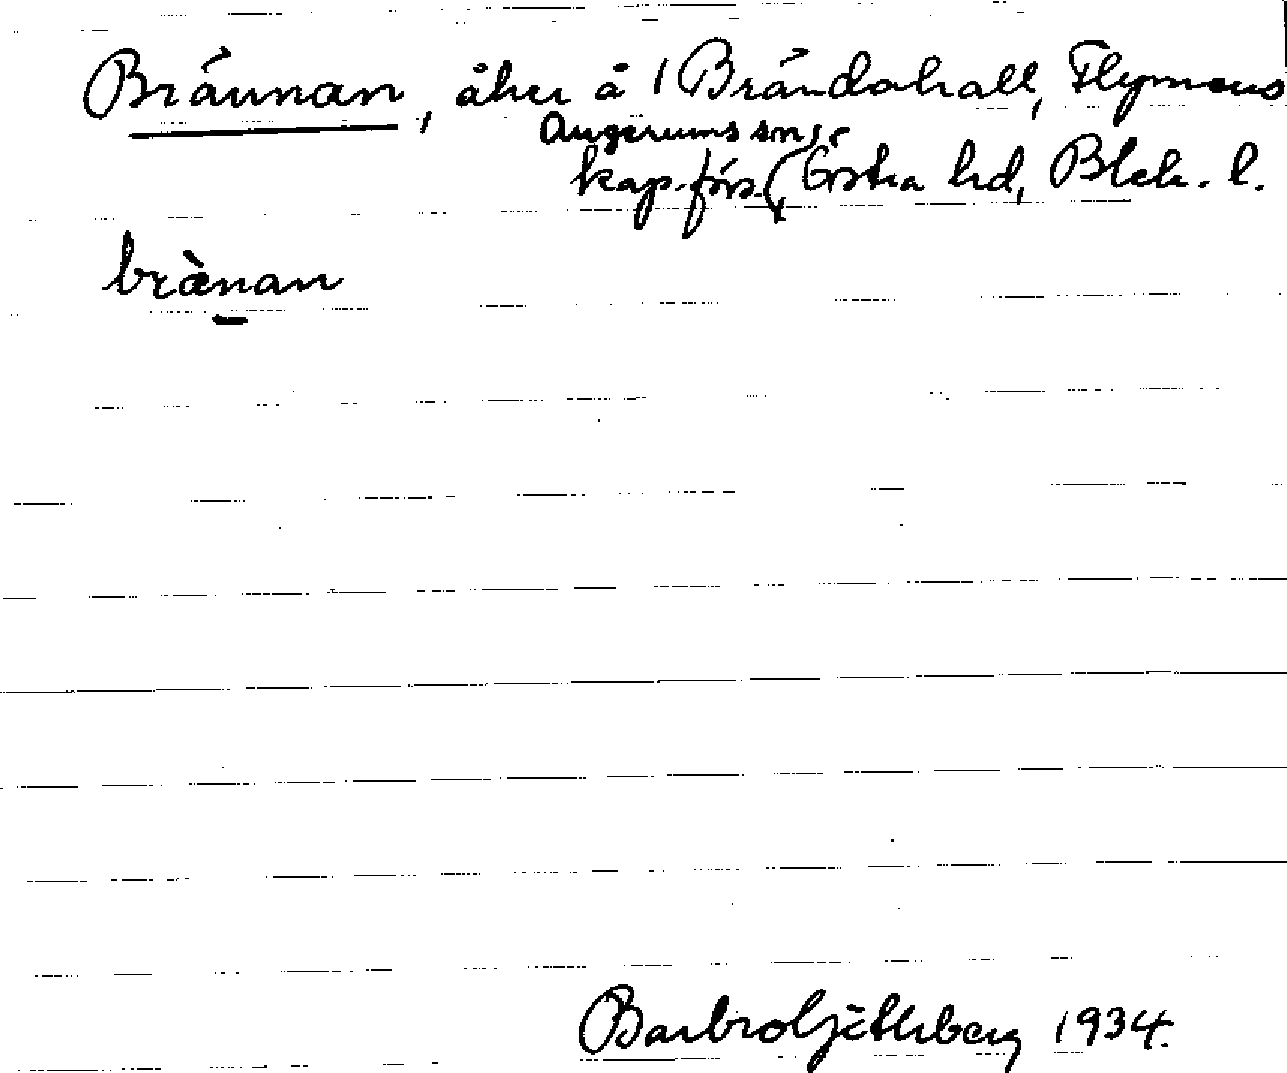 Brännan, åker å 1 Brändahall, Flymens
Augerums sn,
kap.förs. Östra hd, Blek. l.
brànan
Barbro Götherberg 1934.